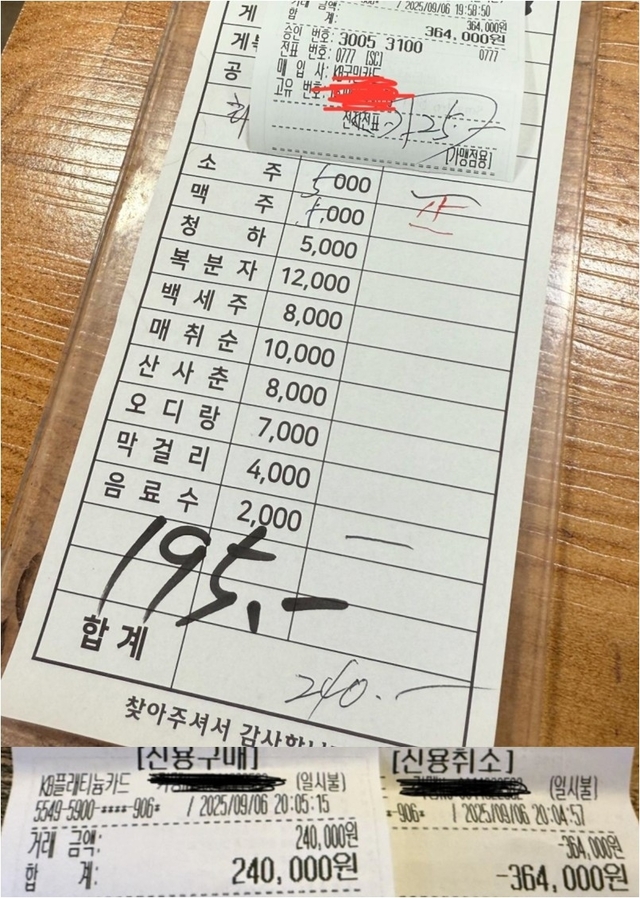 거래 금액: / 2025/09/06 19:58:50
364,000원
합 계: 364,000원
승인 번호: 3005 3100
전표 번호: 0777 [SC] 0777
매 입 사: KB국민카드
고유 번호:
전자전표
[가맹점용]
게
게
공
소 주 5,000
맥 주 5,000
청 하 5,000
복 분 자 12,000
백 세 주 8,000
매 취 순 10,000
산 사 춘 8,000
오 디 랑 7,000
막 걸 리 4,000
음 료 수 2,000 一
195.-
합 계 240.-
찾아주셔서
[신용구매]
KB플래티늄카드 (일시불)
5549-5900-****-906* / 2025/09/06 20:05:15
거래 금액: 240,000원
합 계: 240,000원
[신용취소]
(일시불)
-906* / 2025/09/06 20:04:57
-364,000원
-364,000원